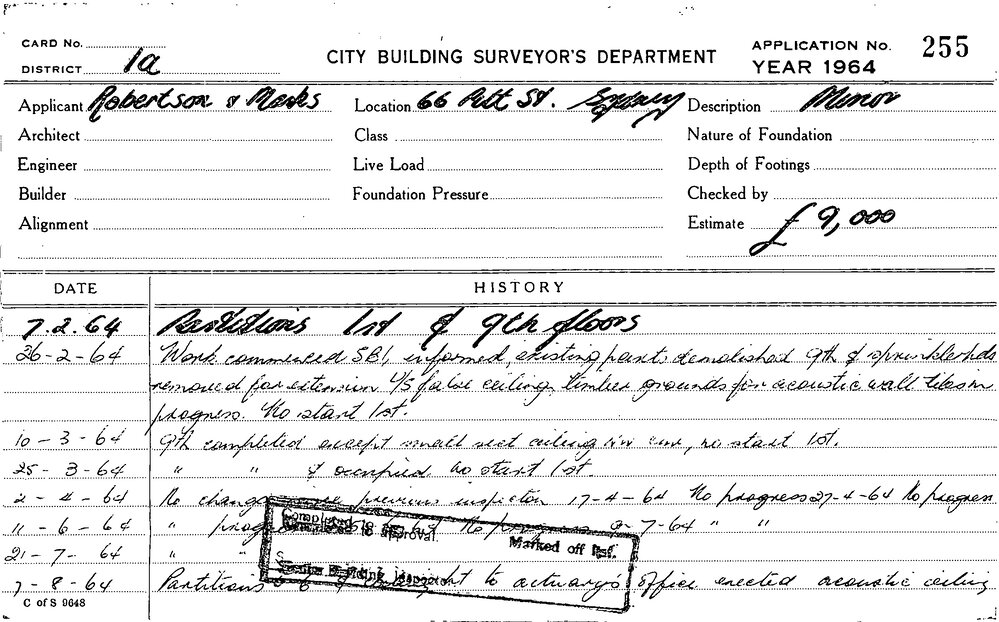 CARD No.
DISTRICT 1a
CITY BUILDING SURVEYOR'S DEPARTMENT
APPLICATION No. 255
YEAR 1964
Applicant Robertson & Marks
Location 66 Pitt St. Sydney
Description Minor
Architect
Class
Nature of Foundation
Engineer
Live Load
Depth of Footings
Builder
Foundation Pressure
Checked by
Alignment
Estimate £ 9,000
DATE HISTORY
7.2.64 Partitions 1st & 9th floors
26-2-64 Work commenced SBI, informed, existing part. demolished 9th & sprinkler hds
removed for extension U/S false ceiling, timber grounds for acoustic wall tiles in
progress. No start 1st.
10-3-64 9th completed except small sect ceiling no start 1st.
25-3-64 " " & occupied no start 1st
2-4-64 No change since previous inspection 17-4-64 No progress 27-4-64 No progress
11-6-64 " No progress 9-7-64 " "
21-7-64 " "
7-8-64 Partitions to actuary's office erected acoustic ceiling
to approval.
Marked off list.
Senior Building Inspector
C of S 9648